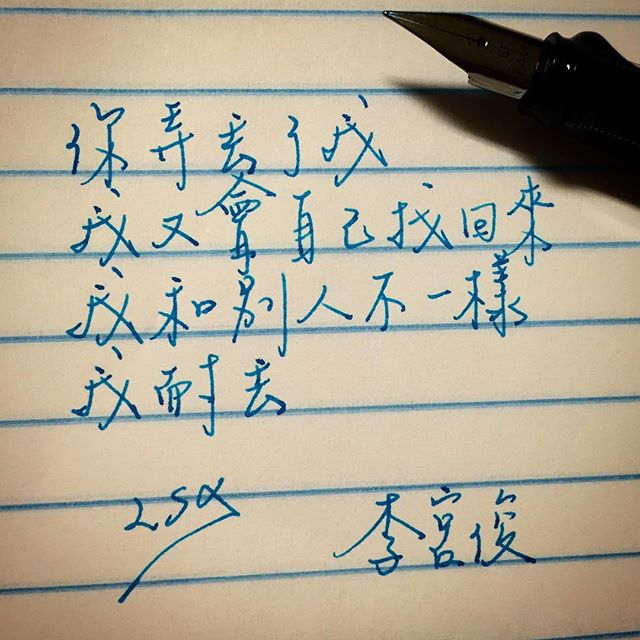 你弄丟了我
我又會自己找回來
我和別人不一樣
我耐丟
李宮俊